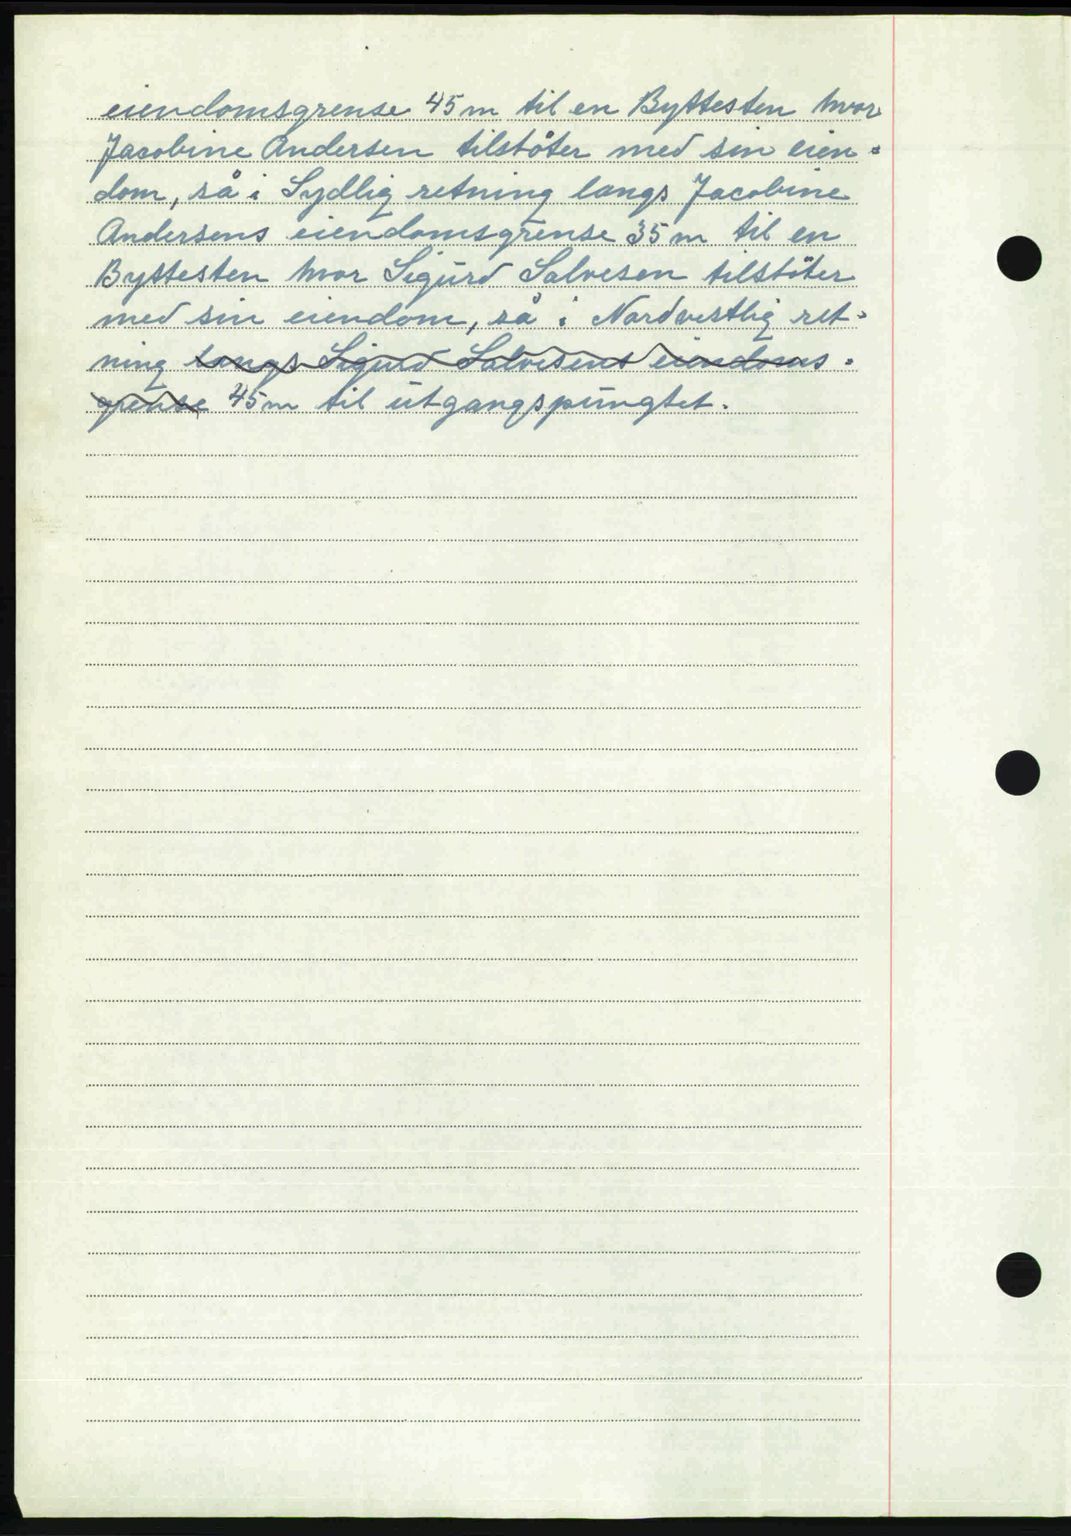 eiendomsgrense 45 m til en Byttesten hvor
Jacobine Andersen tilstöter med sin eien=
dom, så i Sydlig retning langs Jacobine
Andersens eiendomsgrense 35 m til en
Byttesten hvor Sigurd Salvesen tilstöter
med sin eiendom, så i Nordvestlig ret=
ning langs Sigurd Salvesens eiendoms=
grense 45 m til utgangspungtet.